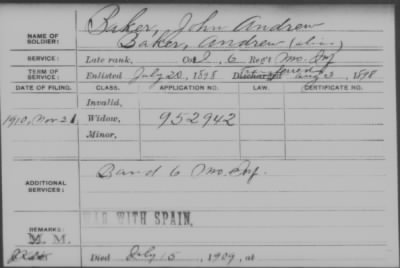 NAME OF SOLDIER: Baker, John Andrew
Baker, Andrew (alias)
SERVICE: Late rank, Co. I, 6 Reg't Mo. Inf.
TERM OF SERVICE: Enlisted July 20, 1898 Discharged Transferred Aug 3, 1898
DATE OF FILING. CLASS. APPLICATION NO. LAW. CERTIFICATE NO.
Invalid,
1910, Nov 21 Widow, 952942
Minor,
ADDITIONAL SERVICES: Band 6 Mo. Inf.
WAR WITH SPAIN.
REMARKS:
M. M.
Died July 15, 1909, at